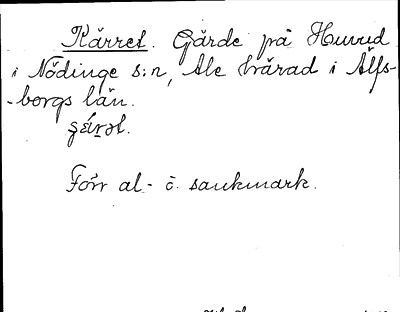 Kärret. Gärde på Huvud
i Nödinge s:n, Ale härad i Älfs-
-borgs län.
Förr al- o. sankmark.